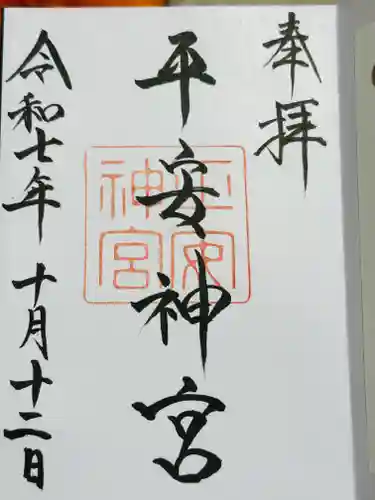 奉拝
平安神宮
平安神宮
令和七年十月十二日